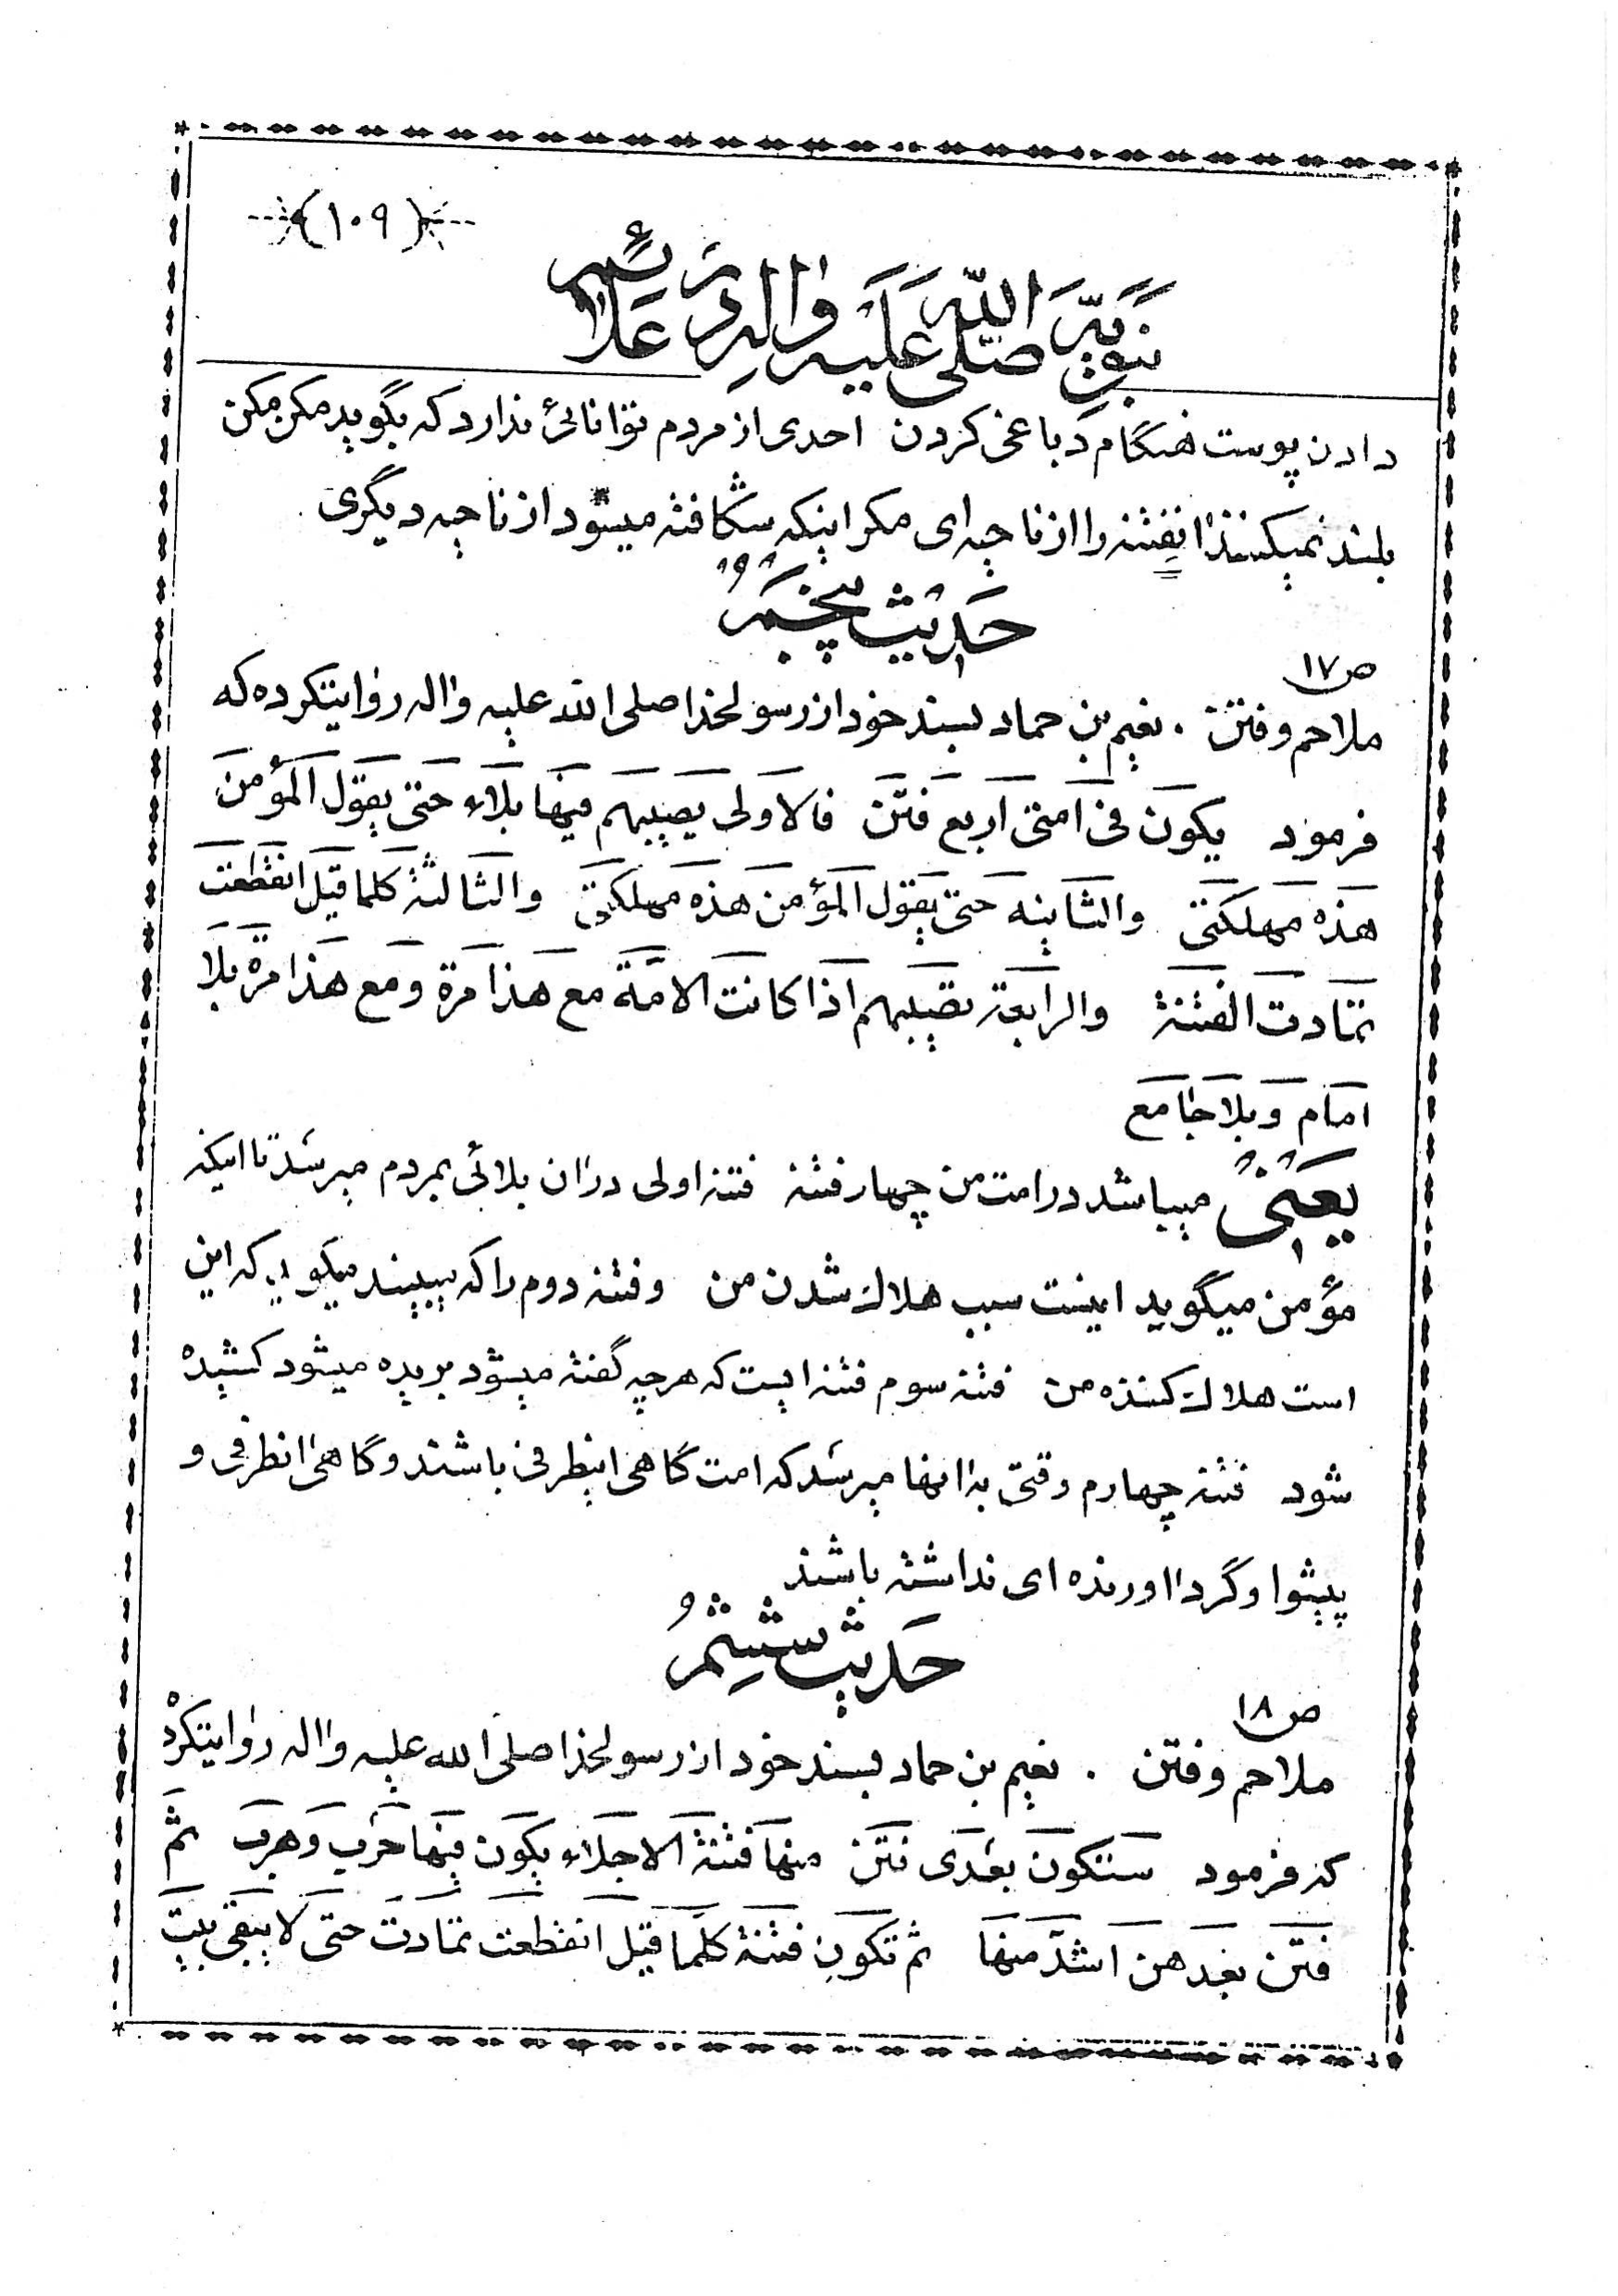 (۱۰۹)
نبویّه صلّی اللّه علیه واله در علائم
دادن پوست هنگام دباغی کردن احدی از مردم توانائی ندارد که بگوید مکن مکن
بلند نمیکنند انفتنه را از ناحیه ای مگر اینکه شکافته میشود از ناحیه دیگری
حدیث پنجم
ص۱۷
ملاحم وفتن . نعیم بن حماد بسند خود از رسولخدا صلی الله علیه واله روایتکرده که
فرمود یکون فی امتی اربع فتن فالاولی یصیبهم فیها بلاء حتی یقول المؤمن
هذه مهلکتی والثانیه حتی یقول المؤمن هذه مهلکتی والثالثة کلما قیل انقطعت
تمادت الفتنة والرابعة تصیبهم اذا کانت الامّة مع هذا مرة ومع هذا مرّة بلا
امام وبلا جامع
یعنی میباشد در امت من چهار فتنه فتنه اولی در ان بلائی بمردم میرسد تا اینکه
مؤمن میگوید اینست سبب هلاك شدن من وفتنه دوم را که ببیند میگوید که این
است هلاك کننده من فتنه سوم فتنه ایست که هرچه گفته میشود بریده میشود کشیده
شود فتنه چهارم وقتی به انها میرسد که امت گاهی اینطرفی باشند وگاهی انطرفی و
پیشوا وگرد اورنده ای نداشته باشند
حدیث ششم
ص۱۸
ملاحم وفتن . نعیم بن حماد بسند خود از رسولخدا صلی الله علیه واله روایتکرده
که فرمود ستکون بعدی فتن منها فتنة الاجلاء یکون فیها حرب وهرب ثمّ
فتن بعدهن اشدّ منها ثم تکون فتنة کلّما قیل انقطعت تمادت حتی لا یبقی بیت